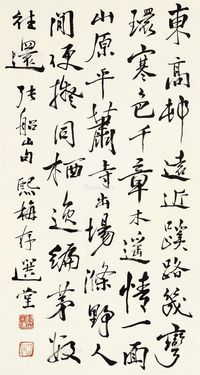 東高邨遠近蹊路幾彎
環寒色千章木遙情一面
山原平蕭寺出場滌野人
閒便擬同栖逸編茅數
往還 張船山 熙梅存 選堂